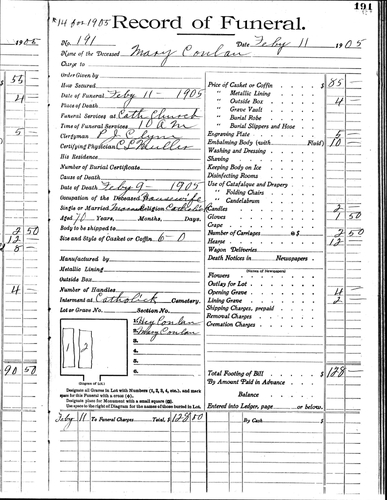 191
#14 for 1905
Record of Funeral.
No. 191
Date Feby 11 1905
Name of the Deceased Mary Conlan
Charge to
Order Given by
How Secured
Date of Funeral Feby 11 - 1905
Place of Death
Funeral Services at Cath. Church
Time of Funeral Services 10 A M
Clergyman P. J. Clynn
Certifying Physician
His Residence
Number of Burial Certificate
Cause of Death
Date of Death Feby 9 - 1905
Occupation of the Deceased Housewife
Single or Married Religion Catholick
Aged 70 Years, Months, Days.
Body to be shipped to
Size and Style of Casket or Coffin 6-0
Manufactured by
Metallic Lining
Outside Box
Number of Handles
Interment at Catholick Cemetery.
Lot or Grave No. Section No.
1 2
1. Hey Conlan
2. Mary Conlan
3.
4.
5.
6.
(Diagram of Lot.)
Designate all Graves in Lot with Numbers (1, 2, 3, 4, etc.), and mark
space for this Funeral with a cross
Designate place for Monument with a small square
Use space to the right of Diagram for the names of those buried in Lot.
Feby 11 To Funeral Charges Total, $ 128 50
Price of Casket or Coffin $ 85 -
" Metallic Lining
" Outside Box 4 -
" Grave Vault
" Burial Robe
" Burial Slippers and Hose
Engraving Plate 5 -
Embalming Body (with Fluid) 10 -
Washing and Dressing
Shaving
Keeping Body on Ice
Disinfecting Rooms
Use of Catafalque and Drapery
" Folding Chairs
" Candelabrum
Candles 2 -
Gloves 1 50
Crape
Number of Carriages @ $ 2 50
Hearse 12 -
Wagon Deliveries
Death Notices in Newspapers
(Names of Newspapers)
Flowers
Outlay for Lot
Opening Grave 4 -
Lining Grave 2 -
Shipping Charges, prepaid
Removal Charges
Cremation Charges
Total Footing of Bill $ 128 -
By Amount Paid in Advance
Balance
Entered into Ledger, page or below.
By Cash $
1905
55 -
4 -
5 -
2 50
12 -
90 50